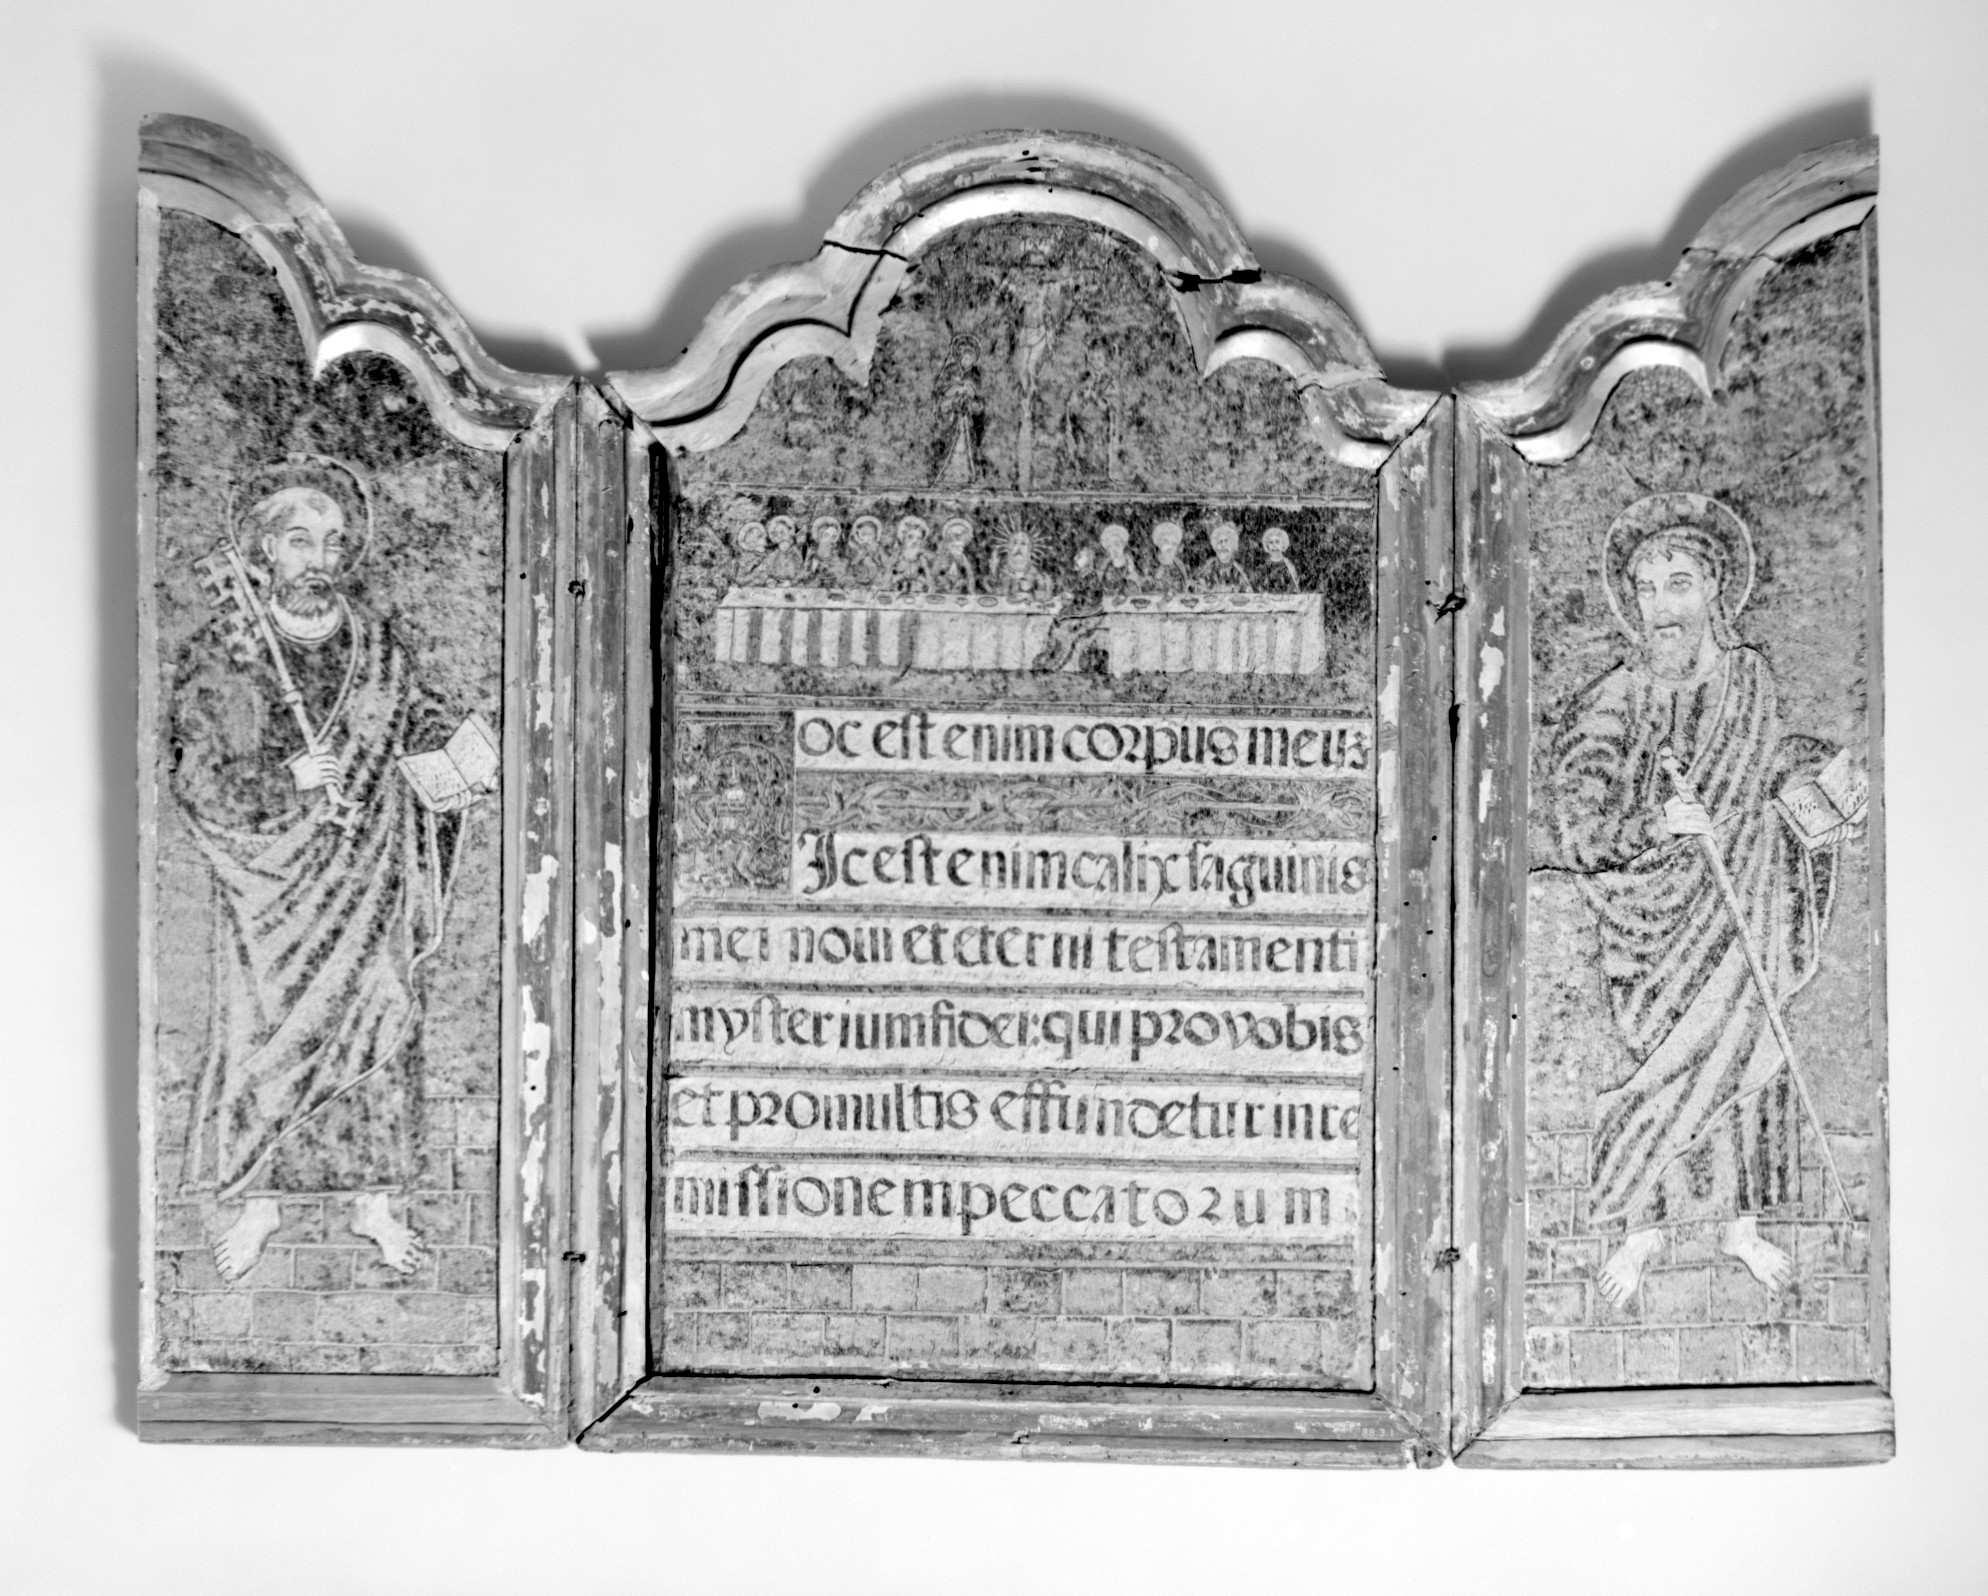 Hoc est enim corpus meuz
Hic est enim calix saguinis
mei noui et eterni testamenti
mysterium fidei: qui pro vobis
et pro multis effundetur in re
missionem peccatorum
88.3.1